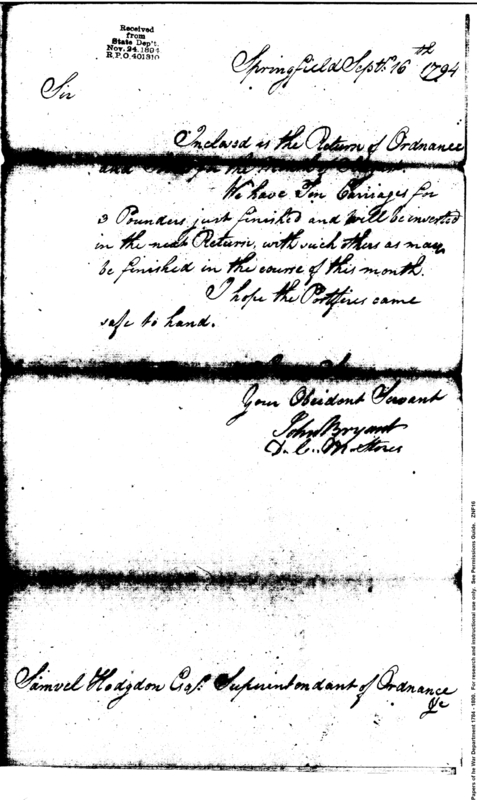 Received
from
State Dep't.
Nov. 24. 1894
R.P.O. 401310
Springfield Sept. 16th 1794
Sir
Inclosed is the Return of Ordnance
and for the Month of August.
We have Ten Carriages for
3 Pounders just finished and will be inserted
in the next Return, with such others as may
be finished in the course of this month.
I hope the Portfires came
safe to hand.
Your Obeident Servant
John Bryant
D. C. M Stores
Samuel Hodgdon Esqr. Superintendant of Ordnance
&c
Papers of he War Department 1784 - 1800. For research and instructional use only. See Permissions Guide. ZNF16